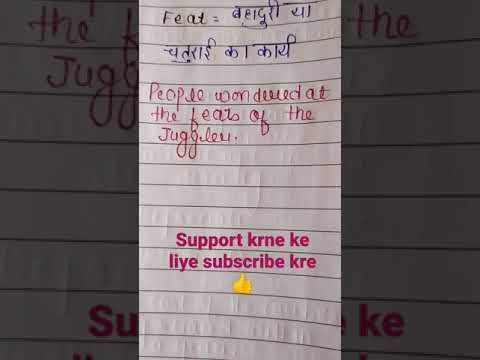 Feat = बहादुरी या
चतुराई का कार्य
People wondered at
the feats of the
Juggler.
Support krne ke
liye subscribe kre
👍